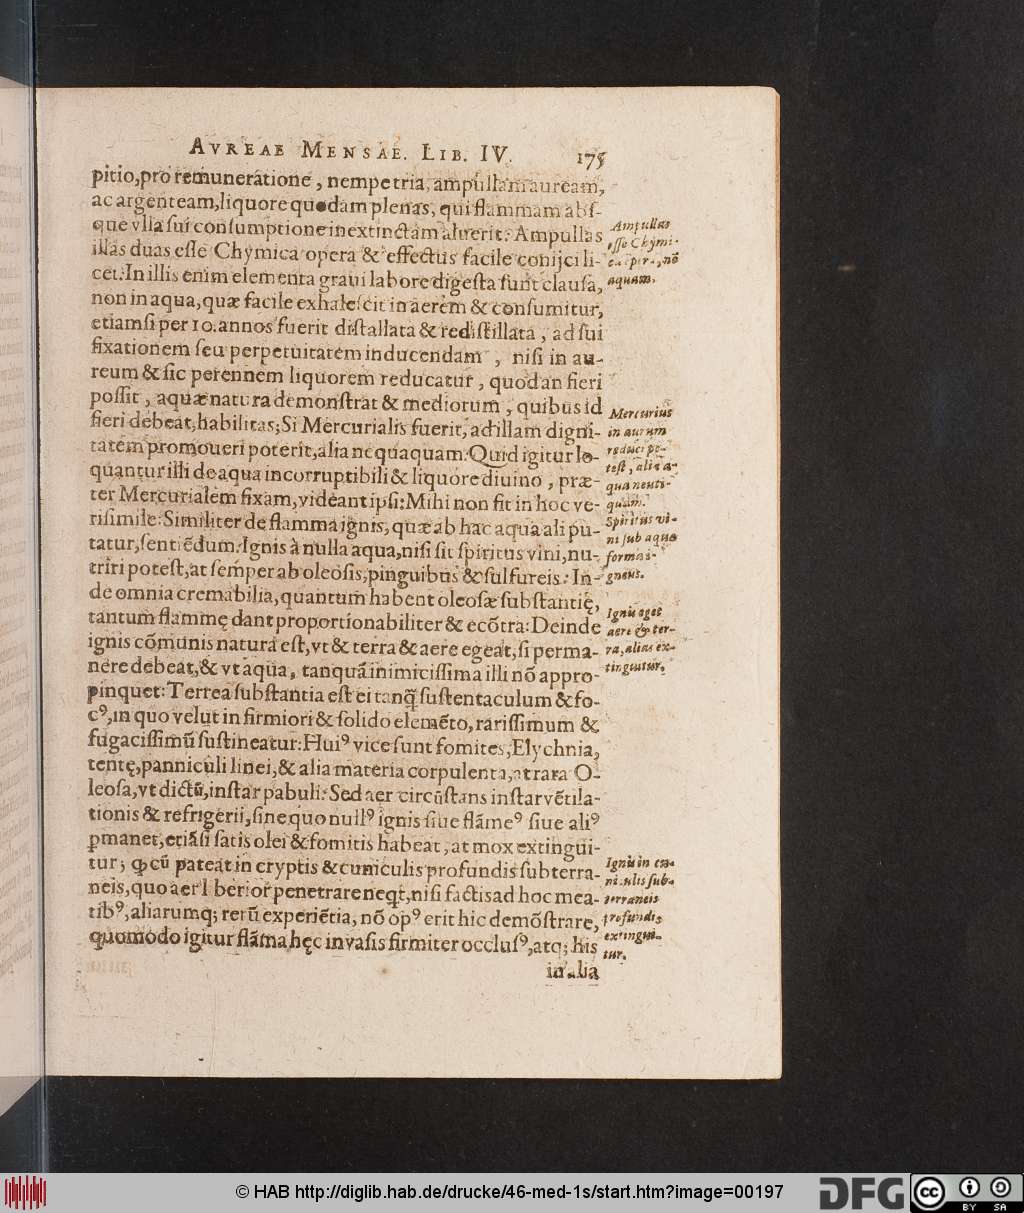 AVREAE MENSAE. LIB. IV. 175
pitio, pro remuneratione, nempe tria, ampullam auream,
ac argenteam, liquore quodam plenas, qui flammam abſ-
que vlla ſui conſumptione inextinctam aluerit: Ampullas
illas duas eſſe Chymica opera & effectus facile conijci li-
cet: In illis enim elementa graui labore digeſta ſunt clauſa,
non in aqua, quæ facile exhaleſcit in aerem & conſumitur,
etiamſi per 10. annos fuerit diſtallata & rediſtillata, ad ſui
fixationem ſeu perpetuitatem inducendam, niſi in au-
reum & ſic perennem liquorem reducatur, quod an fieri
poſſit, aquæ natura demonſtrat & mediorum, quibus id
fieri debeat, habilitas; Si Mercurialis fuerit, ad illam digni-
tatem promoueri poterit, alia nequaquam: Quid igitur lo-
quantur illi de aqua incorruptibili & liquore diuino, præ-
ter Mercurialem fixam, videant ipſi: Mihi non fit in hoc ve-
riſimile: Similiter de flamma ignis, quæ ab hac aqua ali pu-
tatur, ſentiẽdum: Ignis à nulla aqua, niſi ſit ſpiritus vini, nu-
triri poteſt, at ſemper ab oleoſis, pinguibus & ſulfureis: In-
de omnia cremabilia, quantum habent oleoſæ ſubſtantię,
tantum flammę dant proportionabiliter & ecõtra: Deinde
ignis cõmunis natura eſt, vt & terra & aere egeat, ſi perma-
nere debeat, & vt aqua, tanquã inimiciſſima illi nõ appro-
pinquet: Terrea ſubſtantia eſt ei tanq̃ ſuſtentaculum & fo-
cꝰ, in quo velut in firmiori & ſolido elemẽto, rariſſimum &
fugaciſſimũ ſuſtineatur: Huiꝰ vice ſunt fomites, Elychnia,
tentę, panniculi linei, & alia materia corpulenta, at rara O-
leoſa, vt dictũ, inſtar pabuli: Sed aer circũſtans inſtar vẽtila-
tionis & refrigerii, ſine quo nullꝰ ignis ſiue flãmeꝰ ſiue aliꝰ
ꝑmanet, etiãſi ſatis olei & fomitis habeat, at mox extingui-
tur; ꝙ cũ pateat in cryptis & cuniculis profundis ſubterra-
neis, quo aer l berior penetrare neq̃t, niſi factis ad hoc mea-
tibꝰ, aliarumq; rerũ experiẽtia, nõ opꝰ erit hic demõſtrare,
quomodo igitur flãma hęc in vaſis firmiter occluſꝰ, atq; his
in alia
Ampullas
eſſe Chymi-
ca oper., nõ
aquam.
Mercurius
in aurum
reduci po-
teſt, alia a-
qua neuti-
quam.
Spiritus vi-
ni ſub aquæ
forma i-
gneus.
Ignis eget
aere & ter-
ra, alias ex-
tinguitur.
Ignis in cu-
niculis ſub-
terraneis
profundis
extingui-
tur.
© HAB http://diglib.hab.de/drucke/46-med-1s/start.htm?image=00197
DFG
cc
BY SA